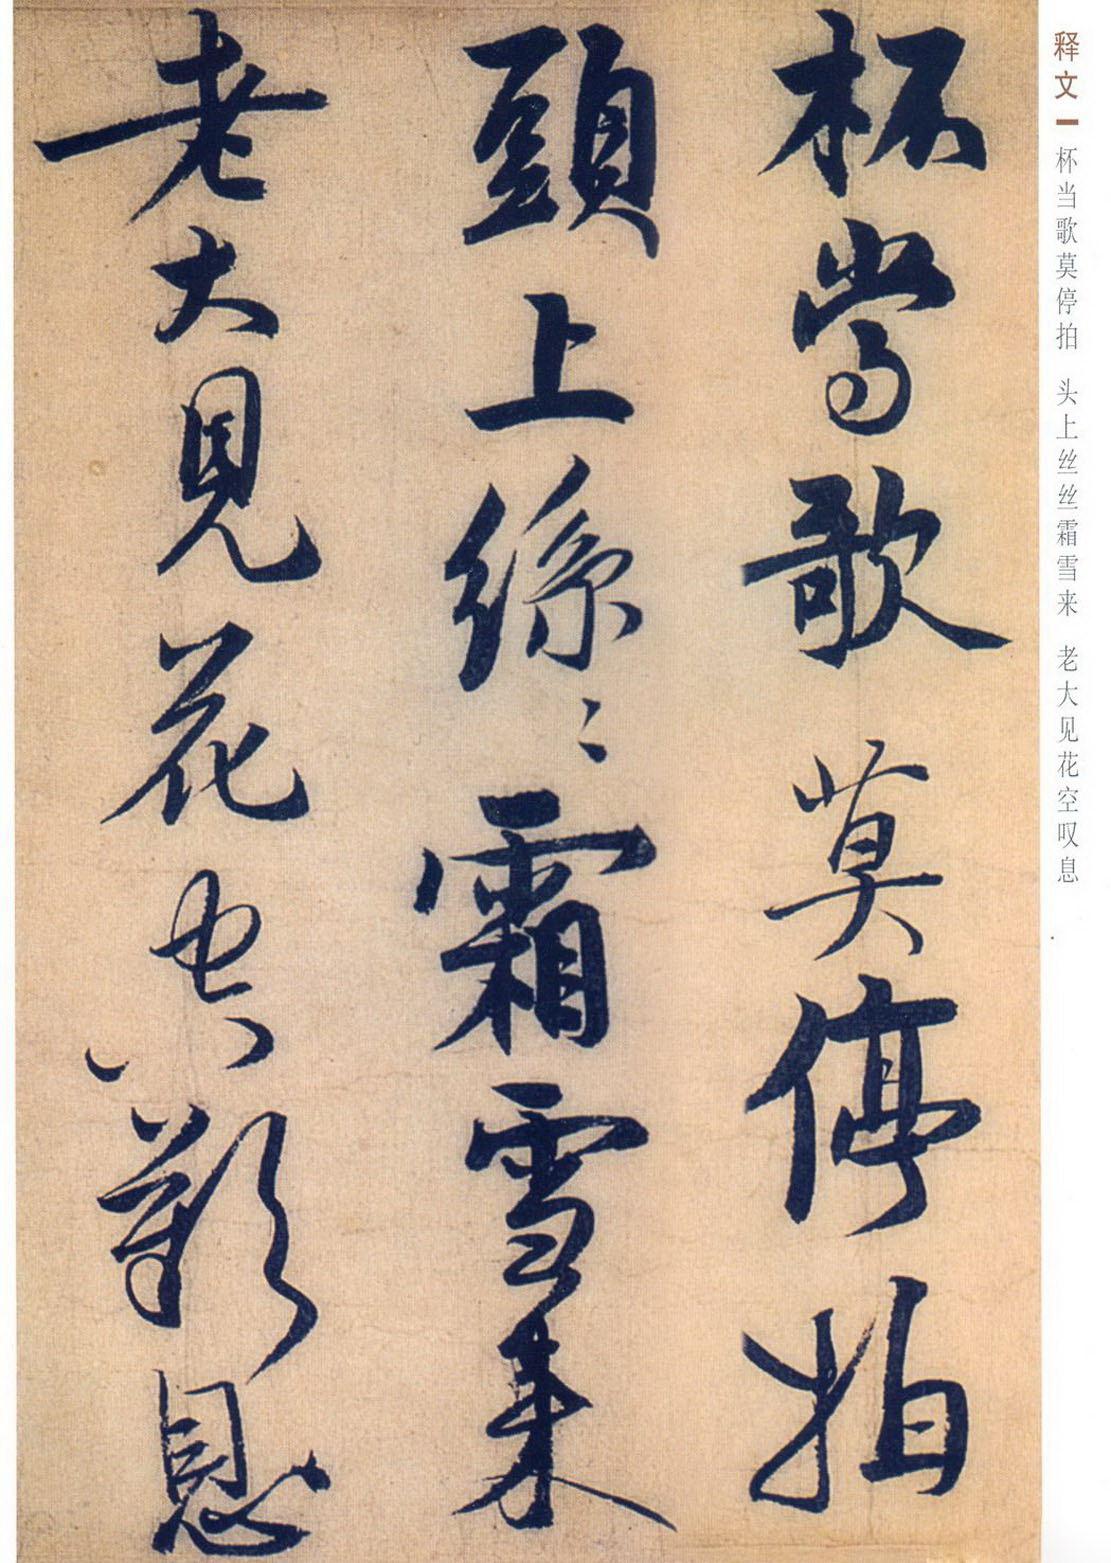 释文 杯当歌莫停拍 头上丝丝霜雪来 老大见花空叹息
杯當歌莫停拍
頭上絲〻霜雪来
老大見花空歎息